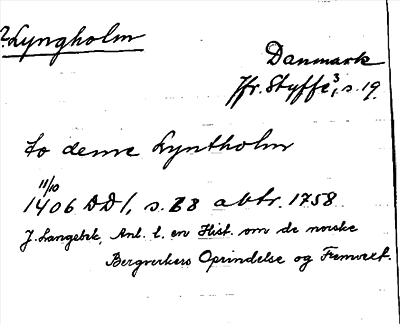 ? Lyngholm
Danmark
Jfr. Styffe³, s. 19.
to deme Lyntholm
11/10
1406 DD1, s. 28 avtr. 1758
J. Langebek, Anl. t. en Hist. om de norske
Bergverkers Oprindelse og Fremvext.